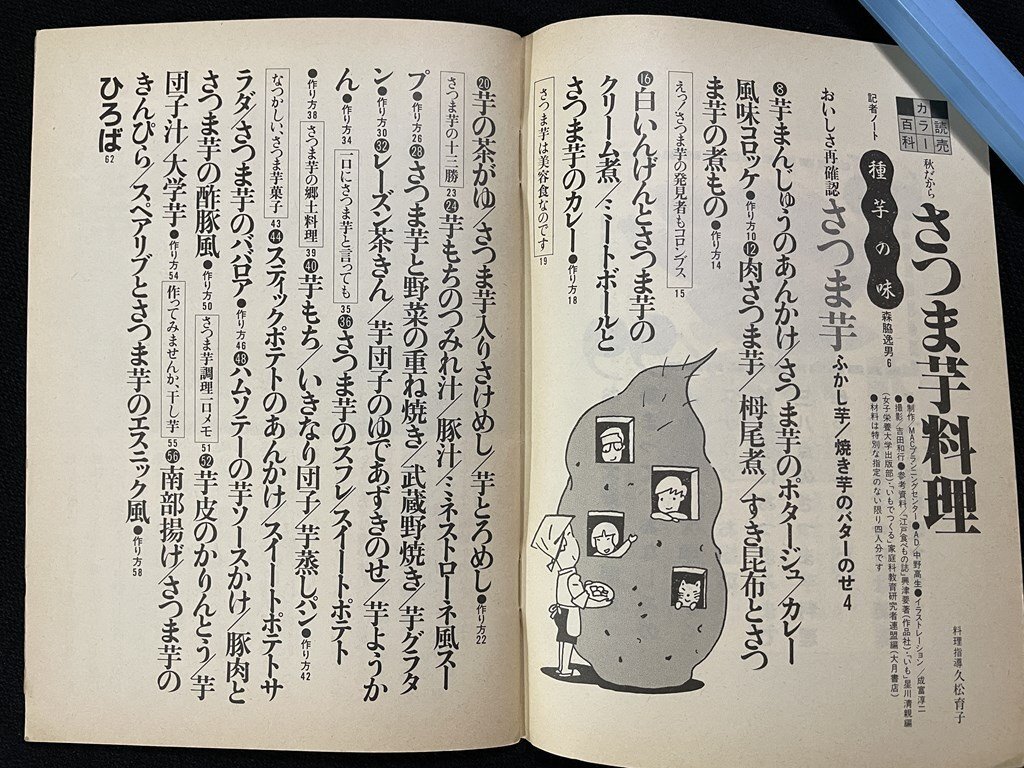 読売
カラー
百科
秋だから
さつま芋料理
料理指導 久松育子
●制作/MACプランニングセンター●AD/中野高生●イラストレーション/成富淳二
●撮影/吉田和行●参考資料/「江戸食べもの誌」興津要著(作品社)・「いも」星川清親編
(女子栄養大学出版部)・「いもでつくる」家庭科教育研究者連盟編(大月書店)
●材料は特別な指定のない限り四人分です
記者ノート
種芋の味
森脇逸男 6
おいしさ再確認 さつま芋 ふかし芋/焼き芋のバターのせ 4
8 芋まんじゅうのあんかけ/さつま芋のポタージュ/カレー
風味コロッケ●作り方10 12 肉さつま芋/栂尾煮/すき昆布とさつ
ま芋の煮もの●作り方14
えっ!さつま芋の発見者もコロンブス 15
16 白いんげんとさつま芋の
クリーム煮/ミートボールと
さつま芋のカレー●作り方18
さつま芋は美容食なのです 19
20 芋の茶がゆ/さつま芋入りさけめし/芋とろめし●作り方22
さつま芋の十三勝 23 24 芋もちのつみれ汁/豚汁/ミネストローネ風スー
プ●作り方26 28 さつま芋と野菜の重ね焼き/武蔵野焼き/芋グラタ
ン●作り方30 32 レーズン茶きん/芋団子のゆであずきのせ/芋ようか
ん●作り方34 一口にさつま芋と言っても 35 36 さつま芋のスフレ/スイートポテト
●作り方38 さつま芋の郷土料理 39 40 芋もち/いきなり団子/芋蒸しパン●作り方42
なつかしい、さつま芋菓子 43 44 スティックポテトのあんかけ/スイートポテトサ
ラダ/さつま芋のババロア●作り方46 48 ハムソテーの芋ソースかけ/豚肉と
さつま芋の酢豚風●作り方50 さつま芋調理一口メモ 51 52 芋皮のかりんとう/芋
団子汁/大学芋●作り方54 作ってみませんか、干し芋 55 56 南部揚げ/さつま芋の
きんぴら/スペアリブとさつま芋のエスニック風●作り方58
ひろば 62